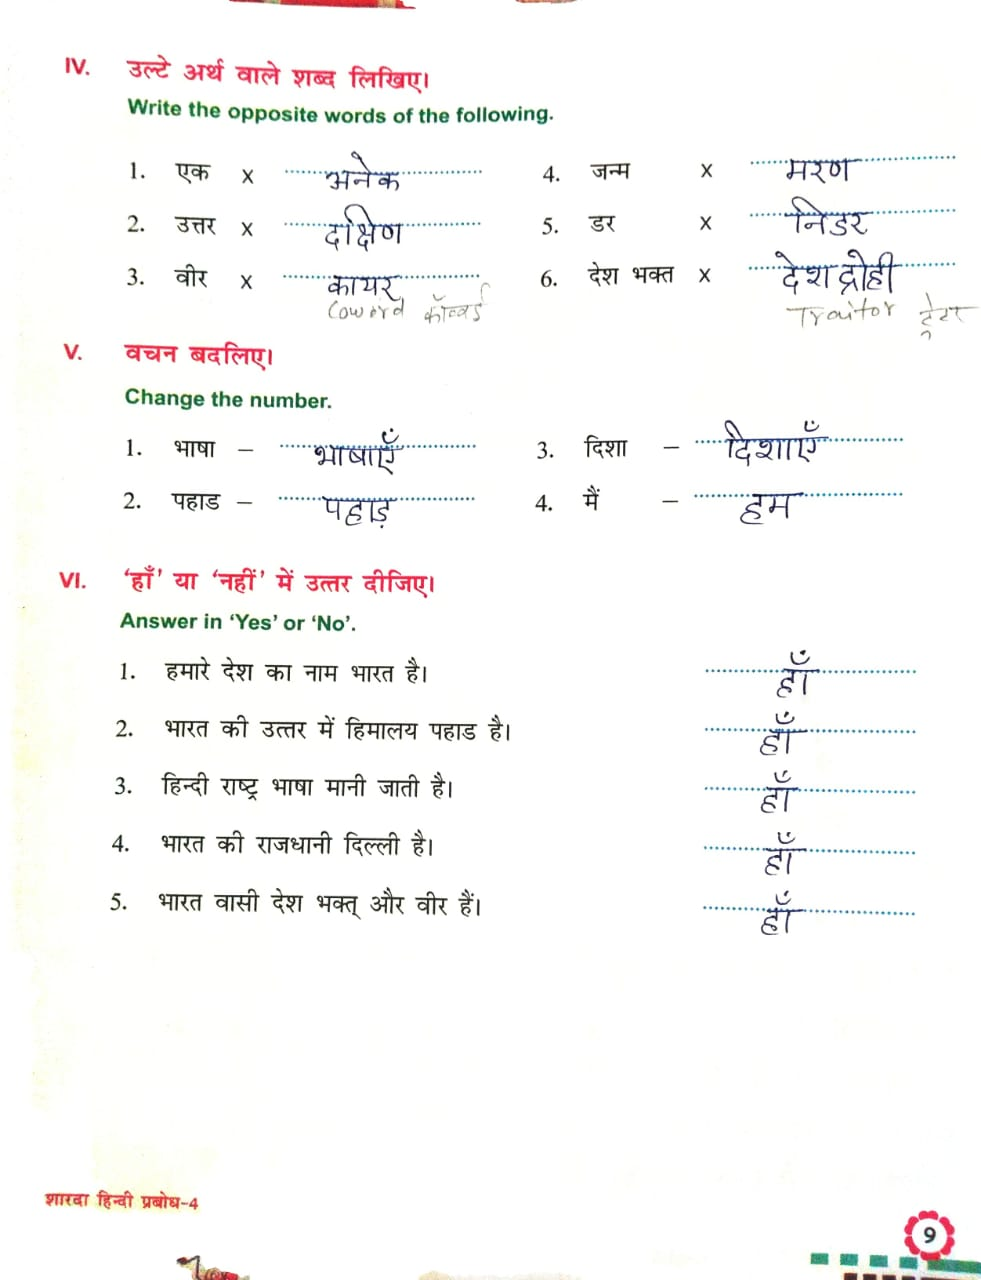 IV. उल्टे अर्थ वाले शब्द लिखिए।
Write the opposite words of the following.
1. एक x अनेक 4. जन्म x मरण
2. उत्तर x दक्षिण 5. डर x निडर
3. वीर x कायर 6. देश भक्त x देशद्रोही
Coword कॉवर्ड Traitor ट्रेटर
V. वचन बदलिए।
Change the number.
1. भाषा – भाषाएँ 3. दिशा – दिशाएँ
2. पहाड – पहाड़ 4. मैं – हम
VI. ‘हाँ’ या ‘नहीं’ में उत्तर दीजिए।
Answer in ‘Yes’ or ‘No’.
1. हमारे देश का नाम भारत है। हाँ
2. भारत की उत्तर में हिमालय पहाड है। हाँ
3. हिन्दी राष्ट्र भाषा मानी जाती है। हाँ
4. भारत की राजधानी दिल्ली है। हाँ
5. भारत वासी देश भक्त् और वीर हैं। हाँ
शारदा हिन्दी प्रबोध-4
9